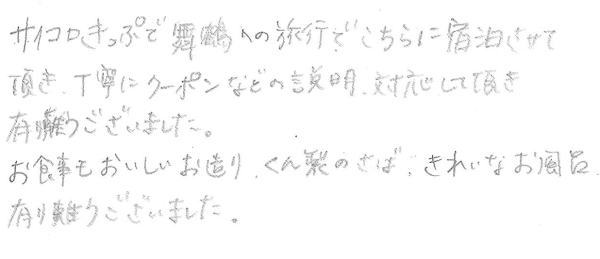 サイコロきっぷで舞鶴への旅行でこちらに宿泊させて
頂き、丁寧にクーポンなどの説明、対応して頂き
有り難うございました。
お食事もおいしいお造り、くん製のさば、きれいなお風呂、
有り難うございました。